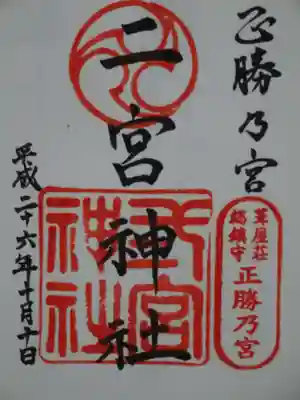 正勝乃宮
二宮神社
平成二十六年十月十日
葺屋荘
総鎮守
正勝乃宮
二宮神社